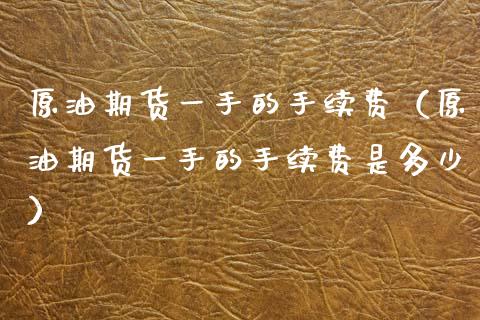 原油期货一手的手续费（原
油期货一手的手续费是多少
）